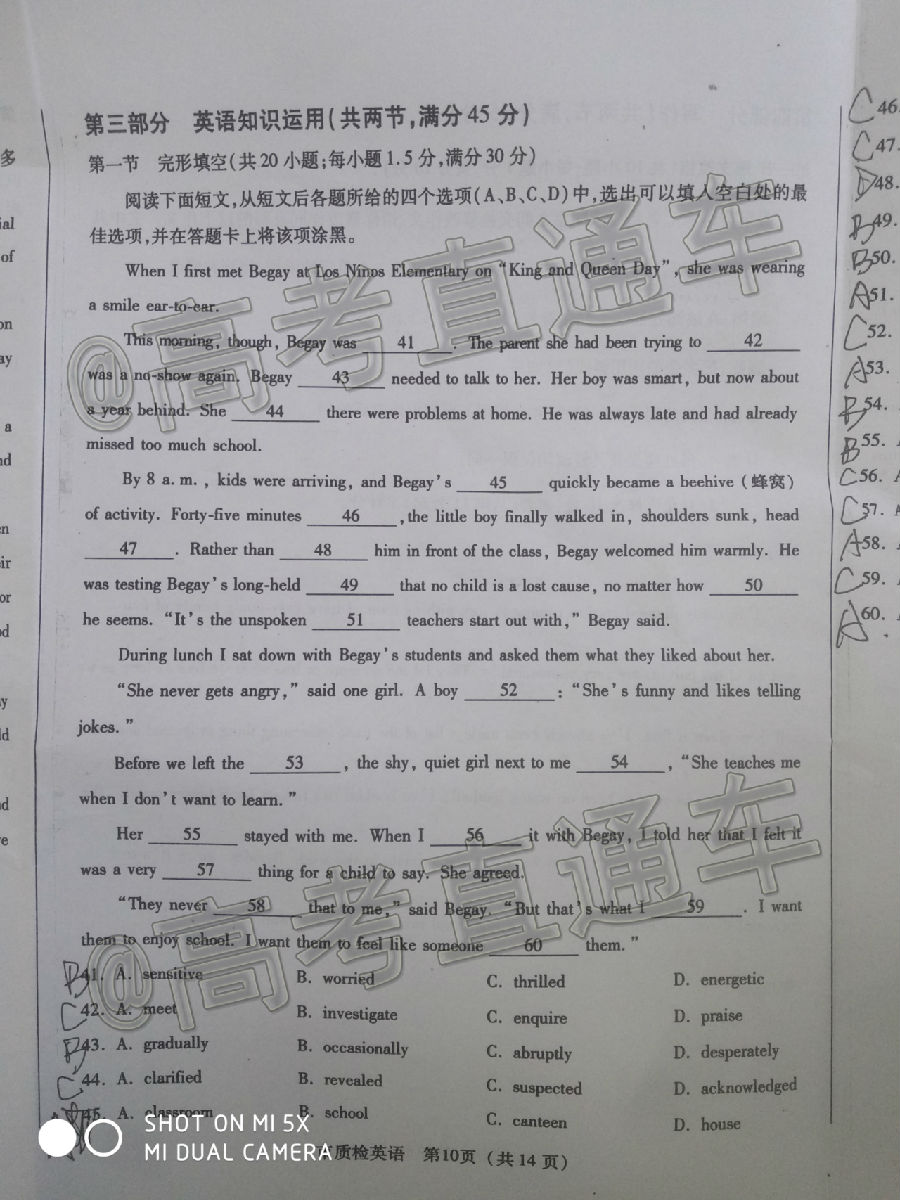 第三部分 英语知识运用(共两节,满分45分)
第一节 完形填空(共20小题;每小题1.5分,满分30分)
阅读下面短文,从短文后各题所给的四个选项(A、B、C、D)中,选出可以填入空白处的最
佳选项,并在答题卡上将该项涂黑。
When I first met Begay at Los Ninos Elementary on "King and Queen Day", she was wearing
a smile ear-to-ear.
This morning, though, Begay was 41 . The parent she had been trying to 42
was a no-show again. Begay 43 needed to talk to her. Her boy was smart, but now about
a year behind. She 44 there were problems at home. He was always late and had already
missed too much school.
By 8 a.m., kids were arriving, and Begay's 45 quickly became a beehive (蜂窝)
of activity. Forty-five minutes 46 ,the little boy finally walked in, shoulders sunk, head
47 . Rather than 48 him in front of the class, Begay welcomed him warmly. He
was testing Begay's long-held 49 that no child is a lost cause, no matter how 50
he seems. "It's the unspoken 51 teachers start out with," Begay said.
During lunch I sat down with Begay's students and asked them what they liked about her.
"She never gets angry," said one girl. A boy 52 : "She's funny and likes telling
jokes."
Before we left the 53 , the shy, quiet girl next to me 54 , "She teaches me
when I don't want to learn."
Her 55 stayed with me. When I 56 it with Begay, I told her that I felt it
was a very 57 thing for a child to say. She agreed.
"They never 58 that to me," said Begay. "But that's what I 59 . I want
them to enjoy school. I want them to feel like someone 60 them."
B 41. A. sensitive B. worried C. thrilled D. energetic
C 42. A. meet B. investigate C. enquire D. praise
B 43. A. gradually B. occasionally C. abruptly D. desperately
C 44. A. clarified B. revealed C. suspected D. acknowledged
45. A. classroom B. school C. canteen D. house
质检英语 第10页(共14页)
C 46.
C 47.
D 48.
B 49.
B 50.
A 51.
C 52.
A 53.
B 54.
B 55.
C 56. A
C 57. A
A 58.
C 59.
A 60.
多
ial
of
on
ay
a
nd
en
eir
or
od
y
ld
nd
e
@高考直通车
@高考直通车
SHOT ON MI 5X
MI DUAL CAMERA